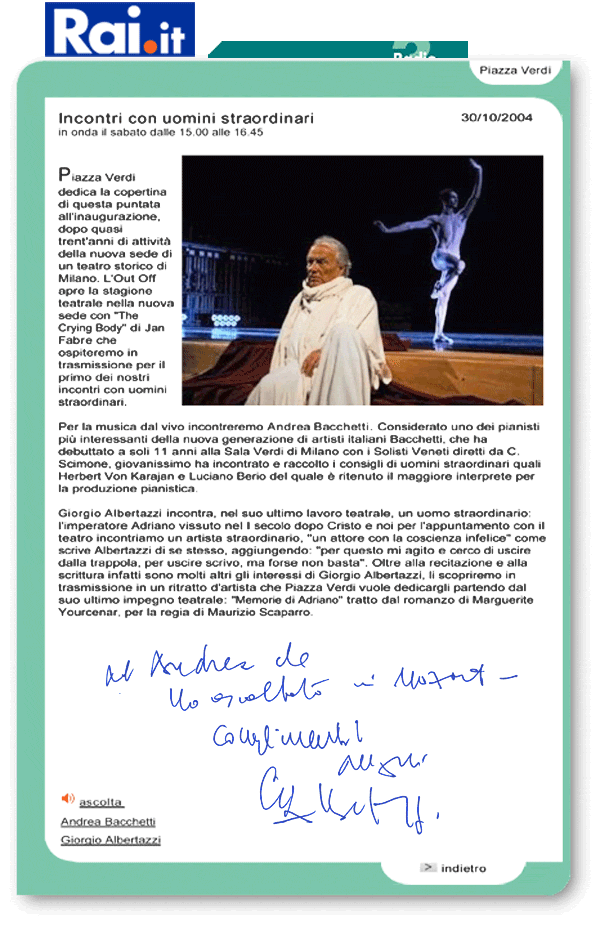 Rai.it
Radio 3
Piazza Verdi
Incontri con uomini straordinari
30/10/2004
in onda il sabato dalle 15.00 alle 16.45
Piazza Verdi
dedica la copertina
di questa puntata
all'inaugurazione,
dopo quasi
trent'anni di attività
della nuova sede di
un teatro storico di
Milano. L'Out Off
apre la stagione
teatrale nella nuova
sede con "The
Crying Body" di Jan
Fabre che
ospiteremo in
trasmissione per il
primo dei nostri
incontri con uomini
straordinari.
Per la musica dal vivo incontreremo Andrea Bacchetti. Considerato uno dei pianisti
più interessanti della nuova generazione di artisti italiani Bacchetti, che ha
debuttato a soli 11 anni alla Sala Verdi di Milano con i Solisti Veneti diretti da C.
Scimone, giovanissimo ha incontrato e raccolto i consigli di uomini straordinari quali
Herbert Von Karajan e Luciano Berio del quale è ritenuto il maggiore interprete per
la produzione pianistica.
Giorgio Albertazzi incontra, nel suo ultimo lavoro teatrale, un uomo straordinario:
l'imperatore Adriano vissuto nel I secolo dopo Cristo e noi per l'appuntamento con il
teatro incontriamo un artista straordinario, "un attore con la coscienza infelice" come
scrive Albertazzi di se stesso, aggiungendo: "per questo mi agito e cerco di uscire
dalla trappola, per uscire scrivo, ma forse non basta". Oltre alla recitazione e alla
scrittura infatti sono molti altri gli interessi di Giorgio Albertazzi, li scopriremo in
trasmissione in un ritratto d'artista che Piazza Verdi vuole dedicargli partendo dal
suo ultimo impegno teatrale: "Memorie di Adriano" tratto dal romanzo di Marguerite
Yourcenar, per la regia di Maurizio Scaparro.
Ad Andrea che
ho ascoltato in Mozart –
complimenti
auguri
ascolta
Andrea Bacchetti
Giorgio Albertazzi
> indietro